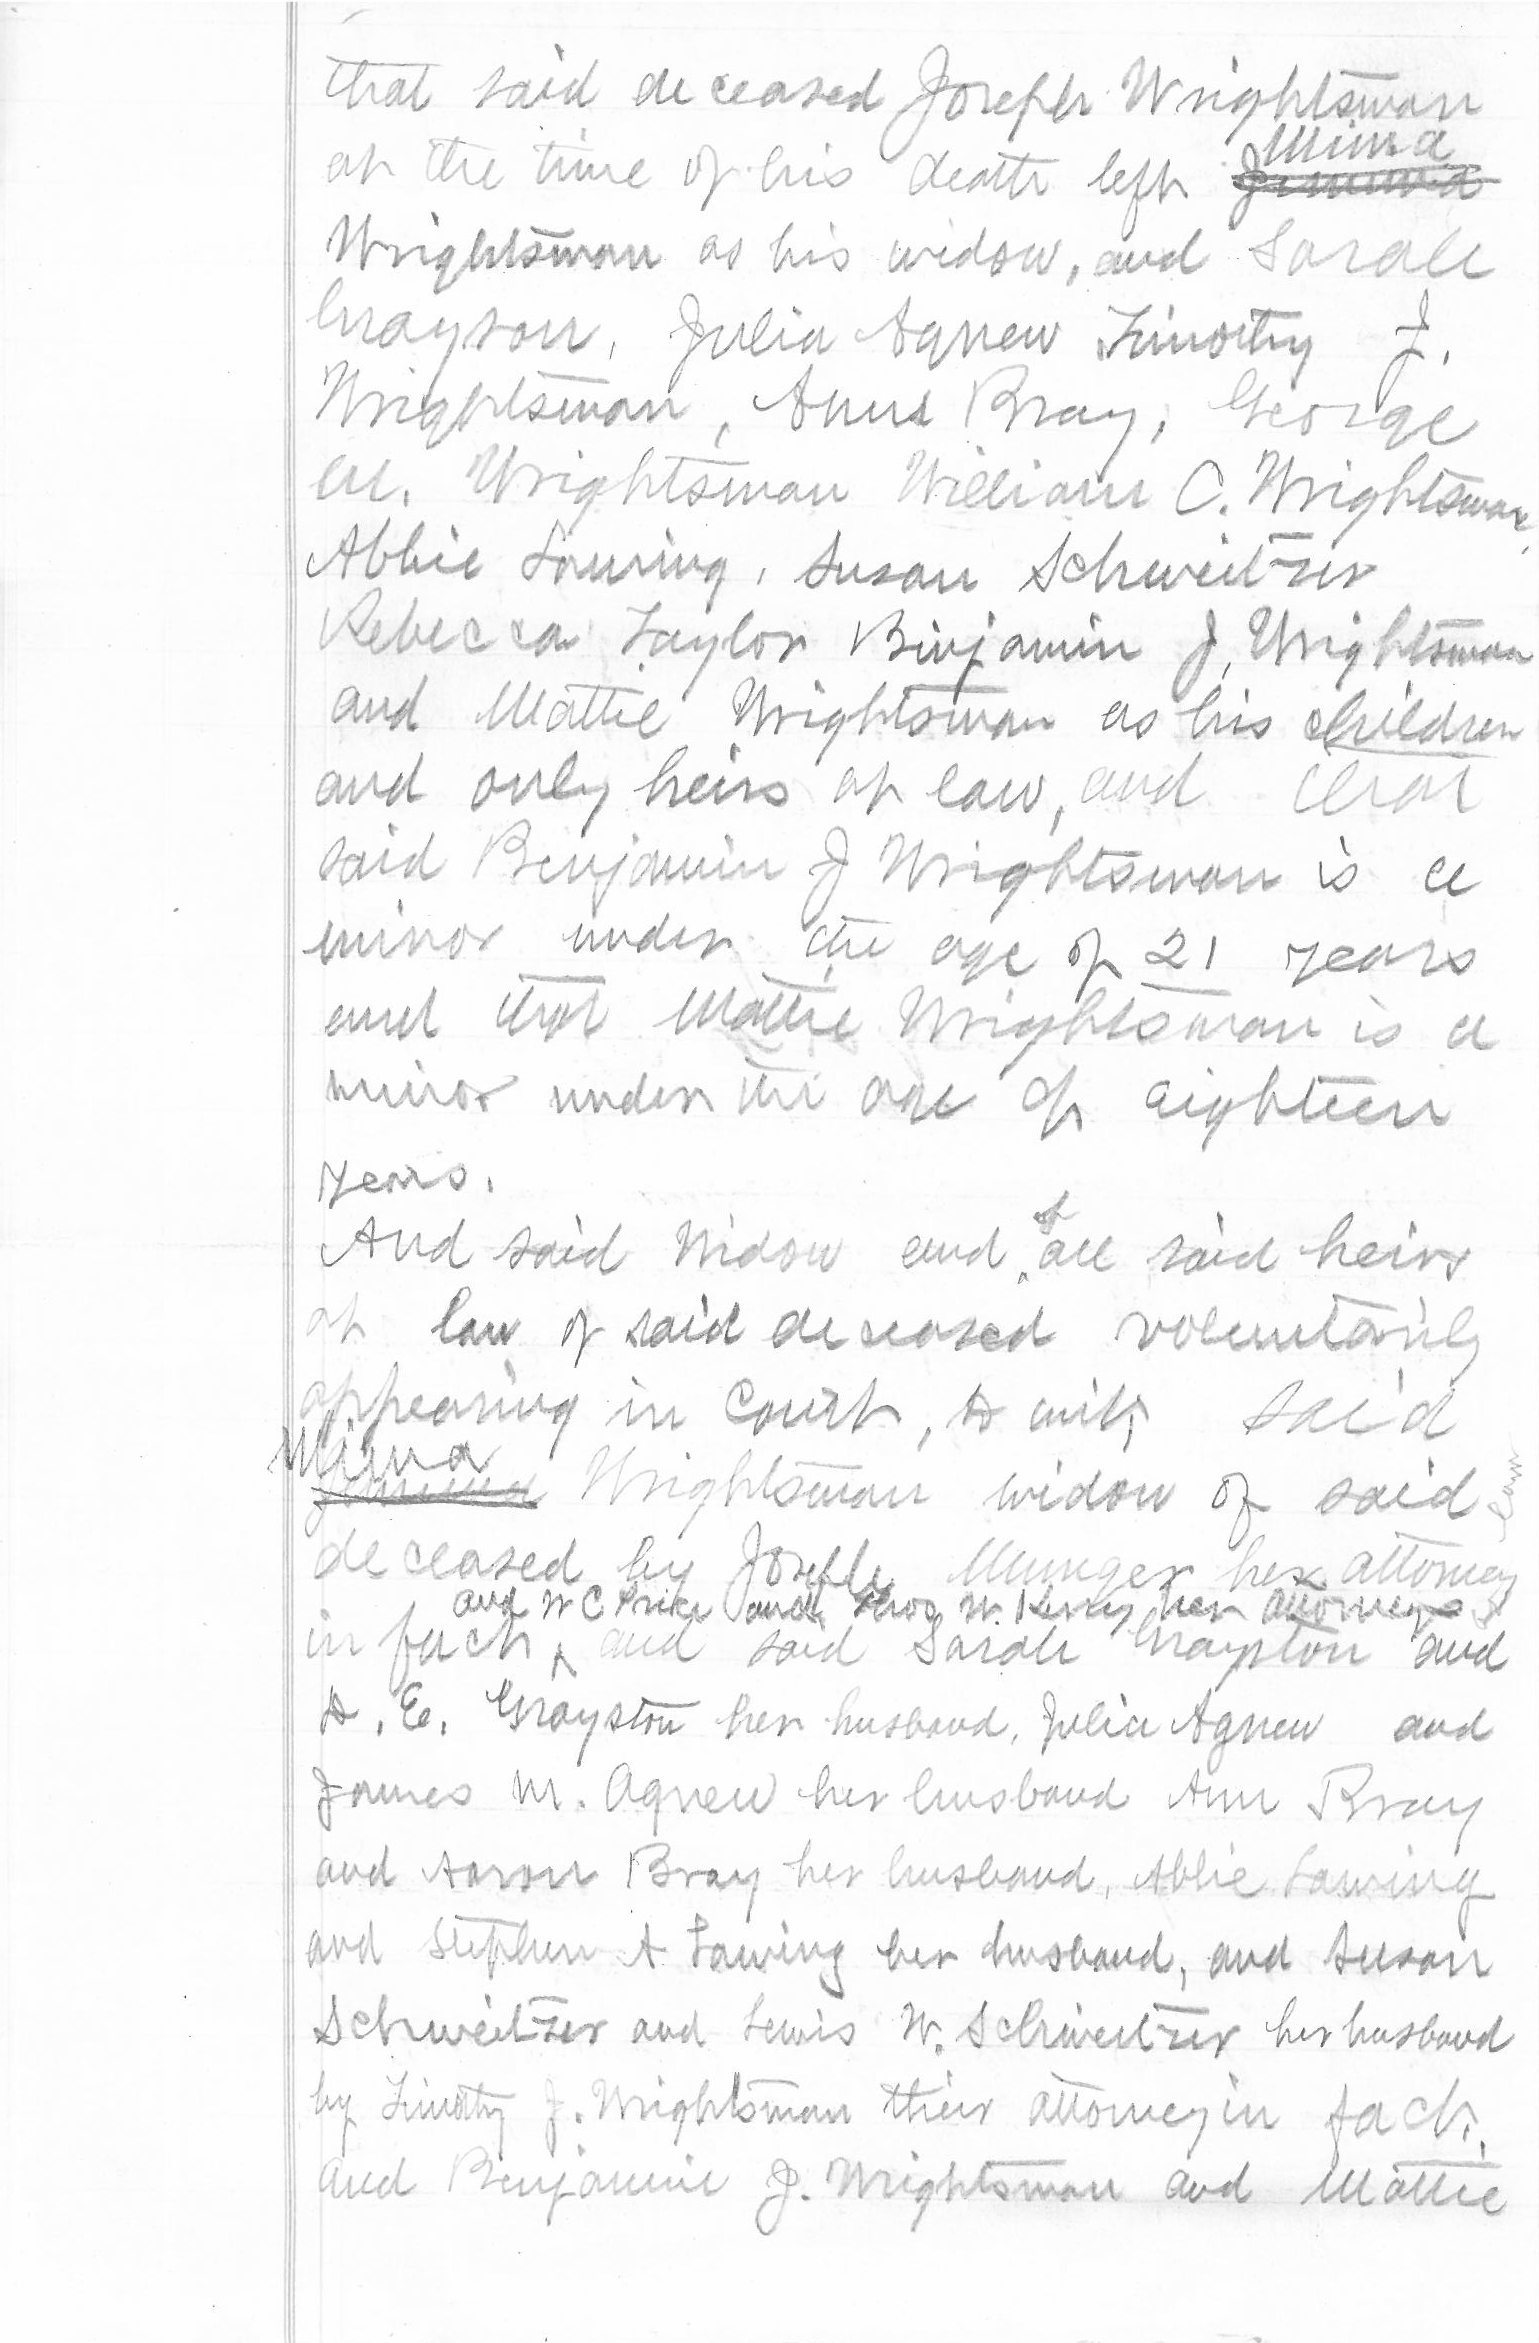 that said deceased Joseph Wrightsman
Mima
at the time of his death left Jemima
Wrightsman as his widow, and Sarah
Grayson, Julia Agnew Timothy J.
Wrightsman, Anna Bray, George
M. Wrightsman William C. Wrightsman,
Abbie Lawing, Susan Schweitzer
Rebecca Taylor Binjamin J. Wrightsman
and Mattie Wrightsman as his children
and only heirs at law, and that
said Benjamin J Wrightsman is a
minor under the age of 21 years
and that Mattie Wrightsman is a
minor under the age of eighteen
years.
And said Widow and all said heirs
at law of said deceased voluntarily
appearing in Court, to wit, said
Mima
Jemima Wrightsman widow of said
deceased by Joseph Munger her attorney
and W C Price and Thos W. Kersey her attorneys at law
in fact, and said Sarah Grayston and
D. E. Grayston her husband, Julia Agnew and
James M. Agnew her husband Ann Bray
and Aaron Bray her husband, Abbie Lawing
and Stephen A Lawing her husband, and Susan
Schweitzer and Lewis W. Schweitzer her husband
by Timothy J. Wrightsman their attorney in fact,
and Benjamin J. Wrightsman and Mattie